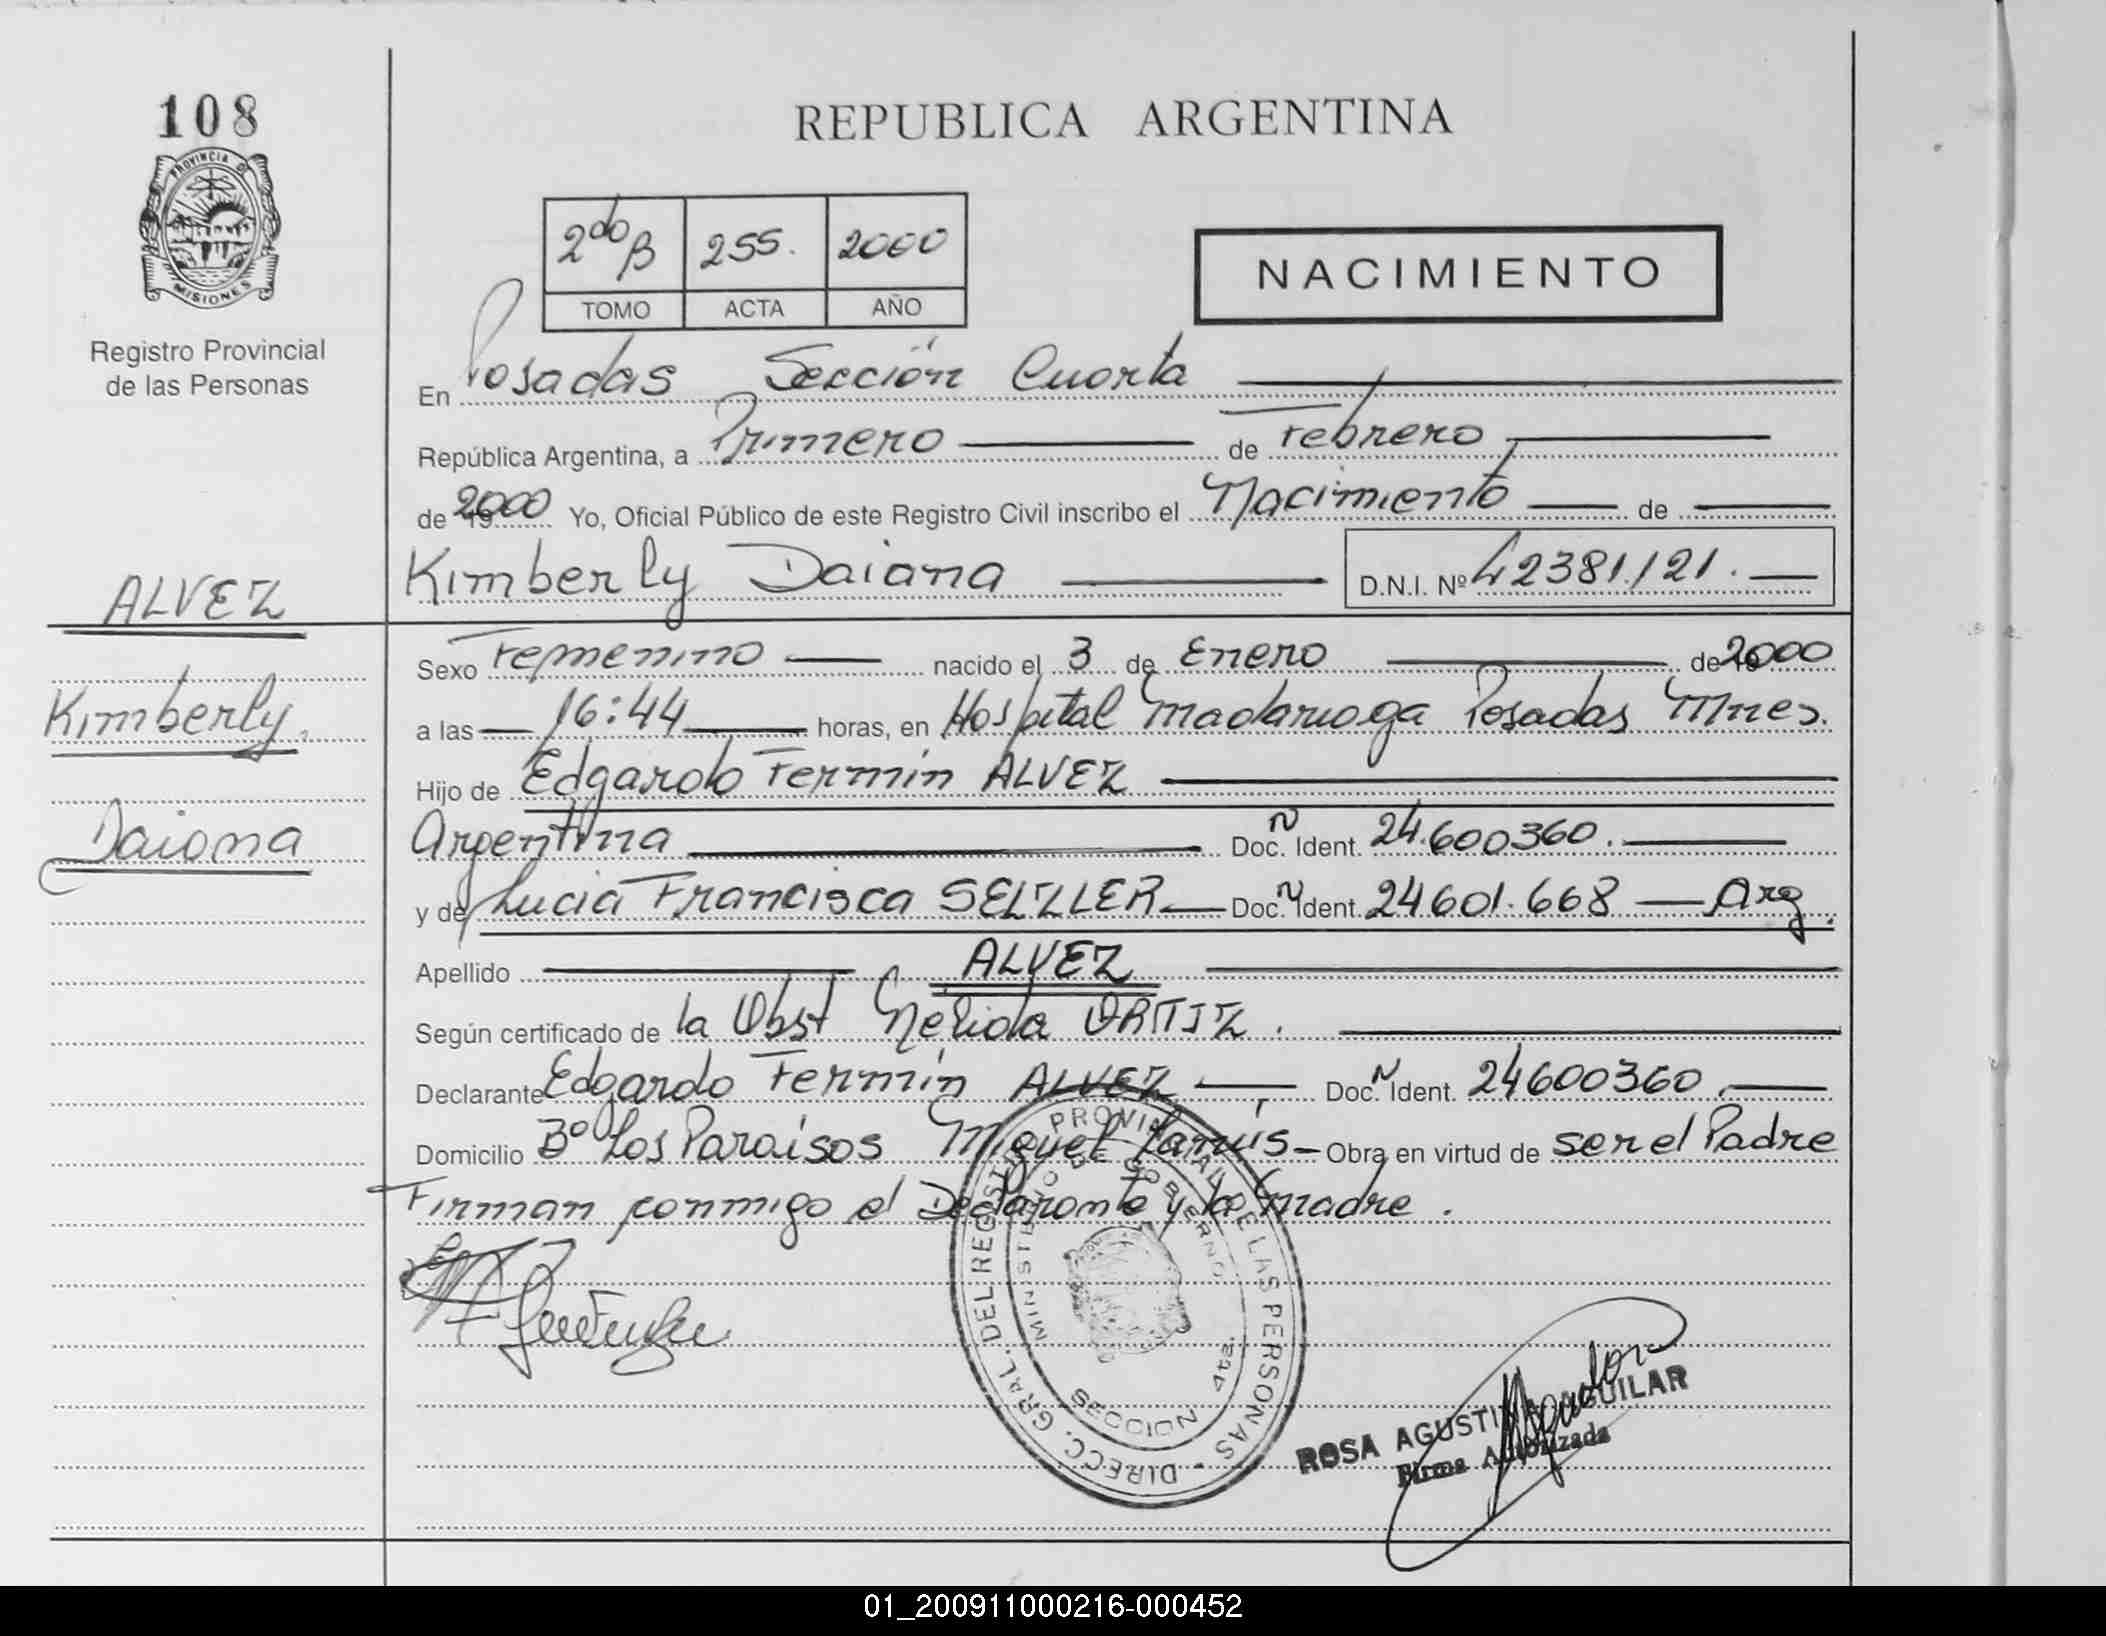 108
PROVINCIA DE
MISIONES
Registro Provincial
de las Personas
ALVEZ
Kimberly
Daiana
REPUBLICA ARGENTINA
2do B 255. 2000
TOMO ACTA AÑO
NACIMIENTO
En Posadas Sección Cuarta
República Argentina, a Primero de Febrero
de 2000 Yo, Oficial Público de este Registro Civil inscribo el Nacimiento de
Kimberly Daiana D.N.I. Nº 42381121.
Sexo Femenino nacido el 3 de Enero de 2000
a las 16:44 horas, en Hospital Madariaga Posadas Mnes.
Hijo de Edgardo Fermin ALVEZ
Argentina Doc. N Ident. 24.600360.
y de Lucia Francisca SELZLER Doc. N Ident. 24601.668 Arg.
Apellido ALVEZ
Según certificado de la Obst Nelida ORTIZ.
Declarante Edgardo Fermin ALVEZ Doc. N Ident. 24600360.
Domicilio Bº Los Paraisos Miguel Lanús Obra en virtud de ser el Padre
Firman conmigo el Declarante y la Madre.
DIRECC. GRAL. DEL REGISTRO PROVINCIAL DE LAS PERSONAS
MINISTERIO DE GOBIERNO
SECCION 4ta.
ROSA AGUSTINA AGUILAR
Firma Autorizada
01_200911000216-000452